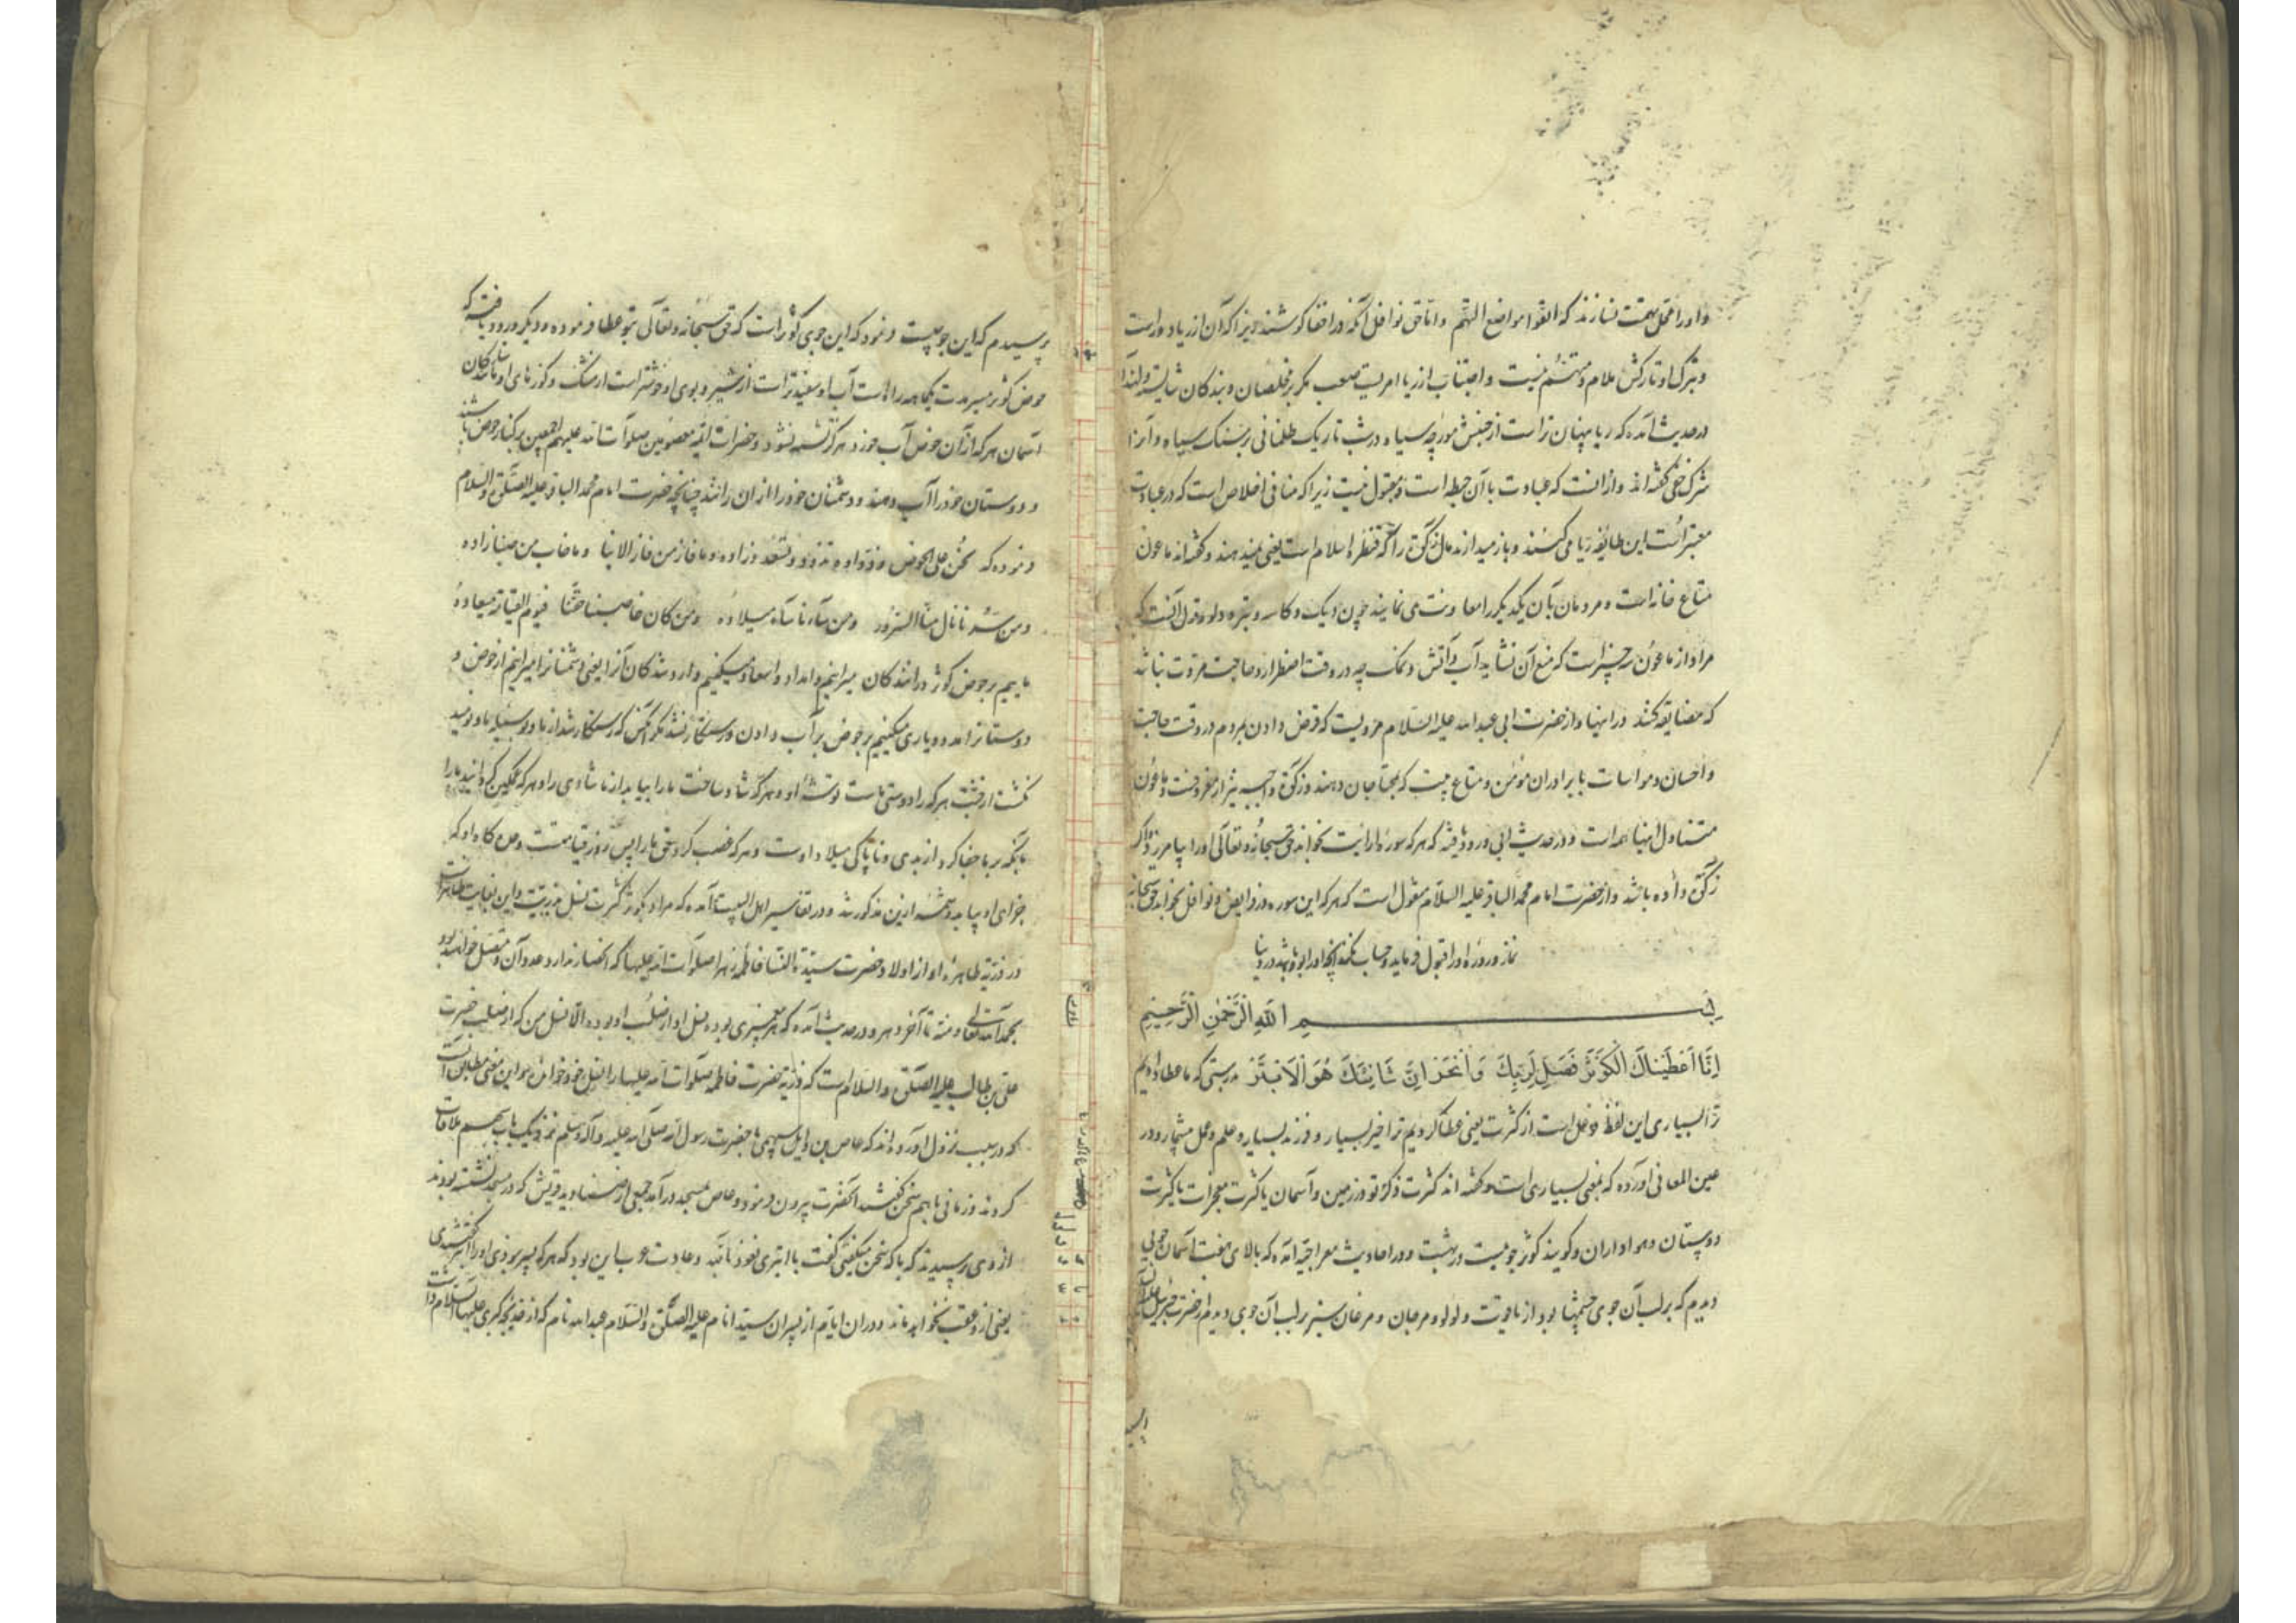 و او را محل تهمت نسازند که اتقوا مواضع التهم و اما حق نوافل آنکه در اخفا کوشند زیرا که آن از ریا دور است
و بترک او تارکش ملام و متهم نیست و اجتناب از ریا امریست صعب مگر بر مخلصان و بندگان شایسته و لهذا
در حدیث آمده که ریا پنهان تر است از جنبش مورچه سیاه در شب تاریک ظلمانی بر سنگ سیاه و آنرا
شرک خفی گفته اند و از آنست که عبادت با آن حبطه است و مقبول نیست زیرا که منافی اخلاص است که در عبادت
معتبر است این طایفه ریا می کنند و باز میدارند مال زکوة را که قنطرۀ اسلام است یعنی نمیدهند و گفته اند ماعون
متاع خانه است و مردمان بآن یکدیگر را معاونت می نمایند چون دیک و کاسه و تبر و دلو و قول آنست که
مراد از ماعون سه چیز است که منع آن نشاید آب و آتش و نمک چه در وقت اضطرار و حاجت مروت نباشد
که مضایقه کنند در اینها و از حضرت ابی عبد الله علیه السلام مرویست که قرض دادن بمردم در وقت حاجت
و احسان و مواسات با برادران مؤمن و متاع بیت که بمحتاجان دهند و زکوة واجبه نیز از معروفست و ماعون
متناول اینها همه است و در حدیث ابی ورود یافته که هر که سورۀ ارایت بخواند حق سبحانه و تعالی او را بیامرزد اگر
زکوة داده باشد و از حضرت امام محمد الباقر علیه السلام منقول است که هر که این سوره در فرایض و نوافل بخواند حق سبحانه
نماز و روزه او را قبول فرماید و حساب نکند آنچه او را بوده باشد در دنیا
بسم الله الرحمن الرحیم
اِنَّا اَعْطَیْنَاكَ الْکَوْثَرَ فَصَلِّ لِرَبِّكَ وَانْحَرْ اِنَّ شَانِئَكَ هُوَ الْاَبْتَرُ بدرستی که ما عطا دادیم
ترا بسیاری این لفظ فوعل است از کثرت یعنی عطا کردیم ترا خیر بسیار و فرزند بسیار و علم و عمل بیشمار و در
عین المعانی آورده که بمعنی بسیاری است و گفته اند کثرت ذکر تو در زمین و آسمان یا کثرت معجزات یا کثرت
دوستان و هواداران و گویند کوثر جوئیست در بهشت و در احادیث معراجیه آمده که بالای هفت آسمان جویی
دیدم که بر لب آن جوی خیمها بود از یاقوت و لولو و مرجان و مرغان سبز بر لب آن جوی دیدم از حضرت جبرئیل علیه السلام
پرسیدم که این جو چیست فرمود که این جوی کوثر است که حق سبحانه و تعالی بتو عطا فرموده و دیگر ورود یافته که
حوض کوثر مسیرت یکماهه راه است آب او سفیدتر است از شیر و بوی او خوشتر است از مشک و کوزهای او مانند ستارگان
آسمان هر که از آن حوض آب خورد هرگز تشنه نشود و حضرات ائمه معصومین صلوات الله علیهم اجمعین بر کنار حوض باشند
و دوستان خود را آب دهند و دشمنان خود را از آن رانند چنانچه حضرت امام محمد الباقر علیه الصلوة والسلام
فرموده که نحن علی الحوض ذواده نذود و نسعد وراده و ما فاز من فاز الا بنا و ما خاب من حبنا زاده
و من سرنا نال منا السرور و من ساءنا ساء میلاده و من کان غاصبنا حقنا فیوم القیامة میعاده
ماییم بر حوض کوثر رانندگان میرانیم و امداد و اسعاد میکنیم واردشوندگان آنرا یعنی دشمنانرا میرانیم از حوض و
دوستانرا مدد و یاری میکنیم بر حوض بر آب دادن و رستگار نشد مگر آنکس که رستگار شد از ما و بوسیله ما و نومید
نگشت از بهشت هر که را دوستی ماست توشه او و هر که شاد ساخت ما را بیابد از ما شادی را و هر که غمگین گردانید ما را
بآنکه بر ما جفا کرد از بدی و ناپاکی میلاد اوست و هر که غصب کرد حق ما را پس روز قیامت وعده گاه اوست که
جزای او بیابد و شمه ازین مذکور شد و در تفاسیر اهل البیت آمده که مراد بکوثر کثرت نسل و ذریت است و این بغایت ظاهر است
در ذریه طاهره او از اولاد حضرت سیدة النسا فاطمه زهرا صلوات الله علیها که انحصار ندارد عدد آن و متصل خواهد بود
بحمد الله تعالی و منه تا آخر دهر و در حدیث آمده که هر پیغمبری بوده نسل او از صلب او بوده الا نسل من که از صلب حضرت
علی بن ابی طالب علیه الصلوة والسلام است که ذریه حضرت فاطمه صلوات الله علیها را نسل خود خوانده و این معنی مطابق آنست
که در سبب نزول آورده اند که عاص بن وایل سهمی با حضرت رسول الله صلی الله علیه و آله وسلم نزدیک باب بنی سهم ملاقات
کردند و زمانی با هم سخن گفتند آنحضرت بیرون فرمود و عاص بمسجد درآمد جمعی از صنادید قریش که در مسجد نشسته بودند
از وی پرسیدند که با که سخن میگفتی گفت با ابتری نعوذ بالله و عادت عرب این بود که هر که پسر نبودی او را ابتر گفتندی
یعنی از و عقب نخواهد ماند و در آن ایام از پسران سید انام علیه الصلوة والسلام عبد الله نام که از خدیجه کبری علیها السلام داشت